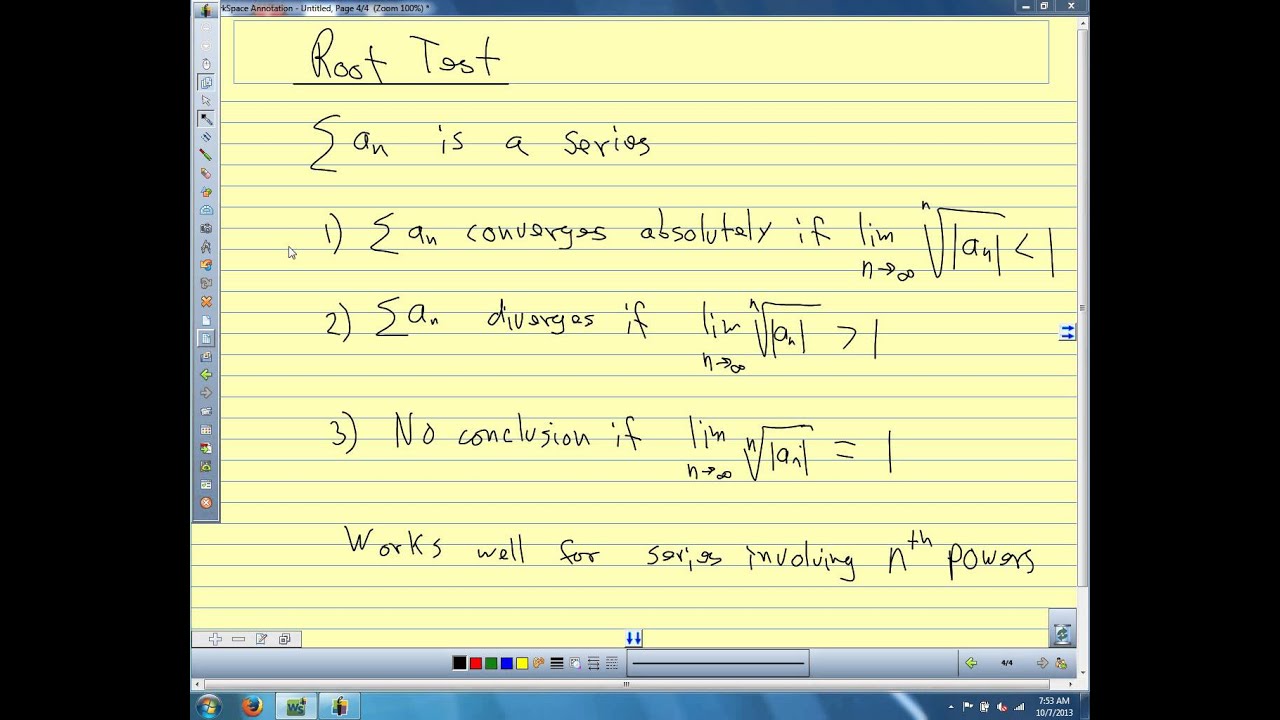 rkSpace Annotation - Untitled, Page 4/4 (Zoom 100%) *
Root Test
∑ aₙ is a series
1) ∑ aₙ converges absolutely if lim n→∞ ⁿ√|aₙ| < 1
2) ∑ aₙ diverges if lim n→∞ ⁿ√|aₙ| > 1
3) No conclusion if lim n→∞ ⁿ√|aₙ| = 1
Works well for series involving nᵗʰ powers
4/4
WS
7:53 AM
10/7/2013